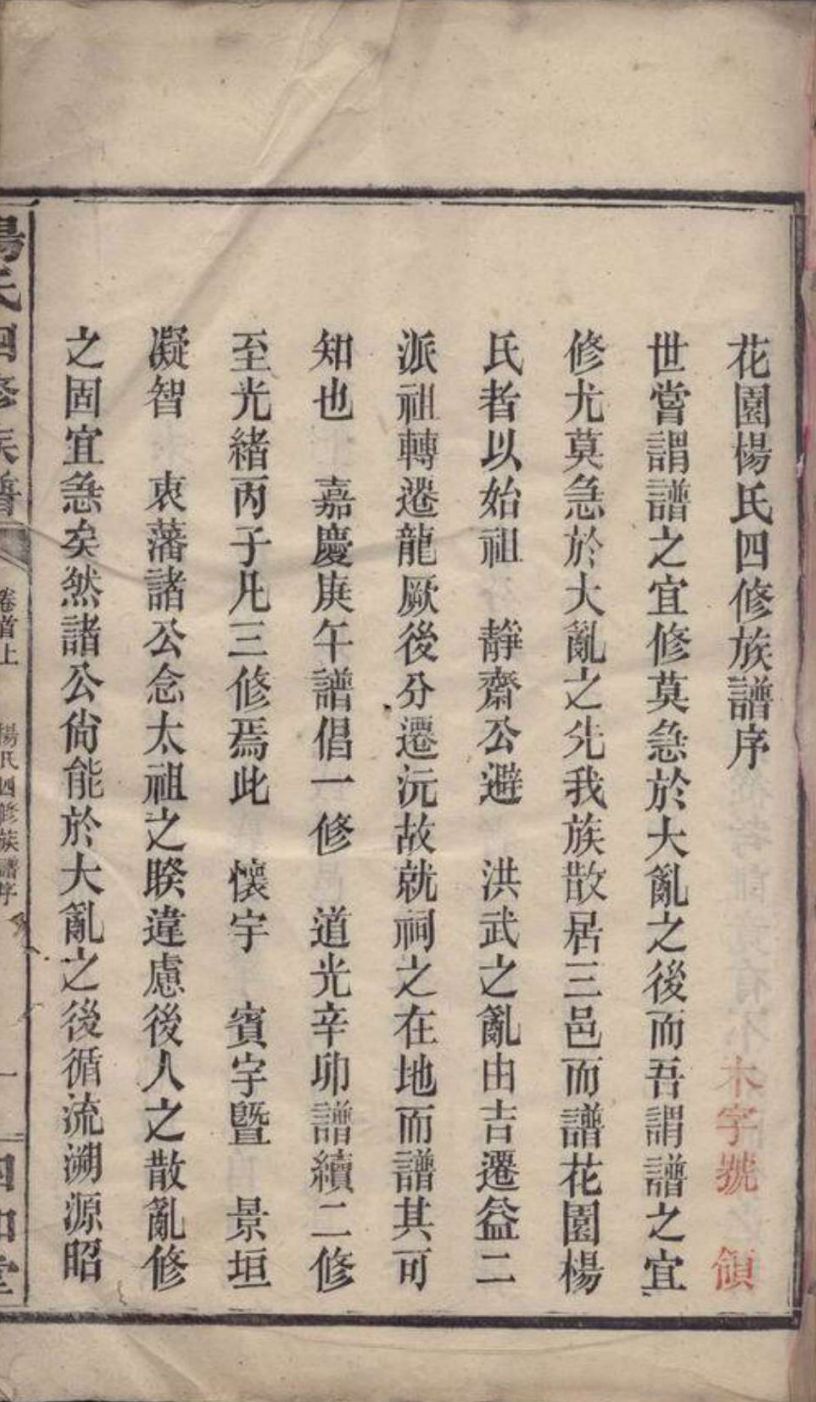 花園楊氏四修族譜序
木字號 領
世嘗謂譜之宜修莫急於大亂之後而吾謂譜之宜
修尤莫急於大亂之先我族散居三邑而譜花園楊
氏者以始祖 靜齋公避 洪武之亂由吉遷益二
派祖轉遷龍厥後分遷沅故就祠之在地而譜其可
知也 嘉慶庚午譜倡一修 道光辛卯譜續二修
至光緒丙子凡三修焉此 懷宇 賓字暨 景垣
凝智 衷藩諸公念太祖之睽違慮後人之散亂修
之固宜急矣然諸公尙能於大亂之後循流溯源昭
楊氏四修族譜
卷首上
楊氏四修族譜序
一
四知堂